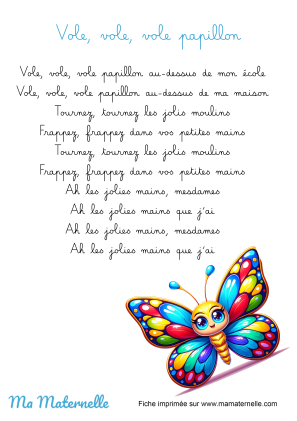 Vole, vole, vole papillon
Vole, vole, vole papillon au-dessus de mon école
Vole, vole, vole papillon au-dessus de ma maison
Tournez, tournez les jolis moulins
Frappez, frappez dans vos petites mains
Tournez, tournez les jolis moulins
Frappez, frappez dans vos petites mains
Ah les jolies mains, mesdames
Ah les jolies mains que j'ai
Ah les jolies mains, mesdames
Ah les jolies mains que j'ai
Ma Maternelle
Fiche imprimée sur www.mamaternelle.com